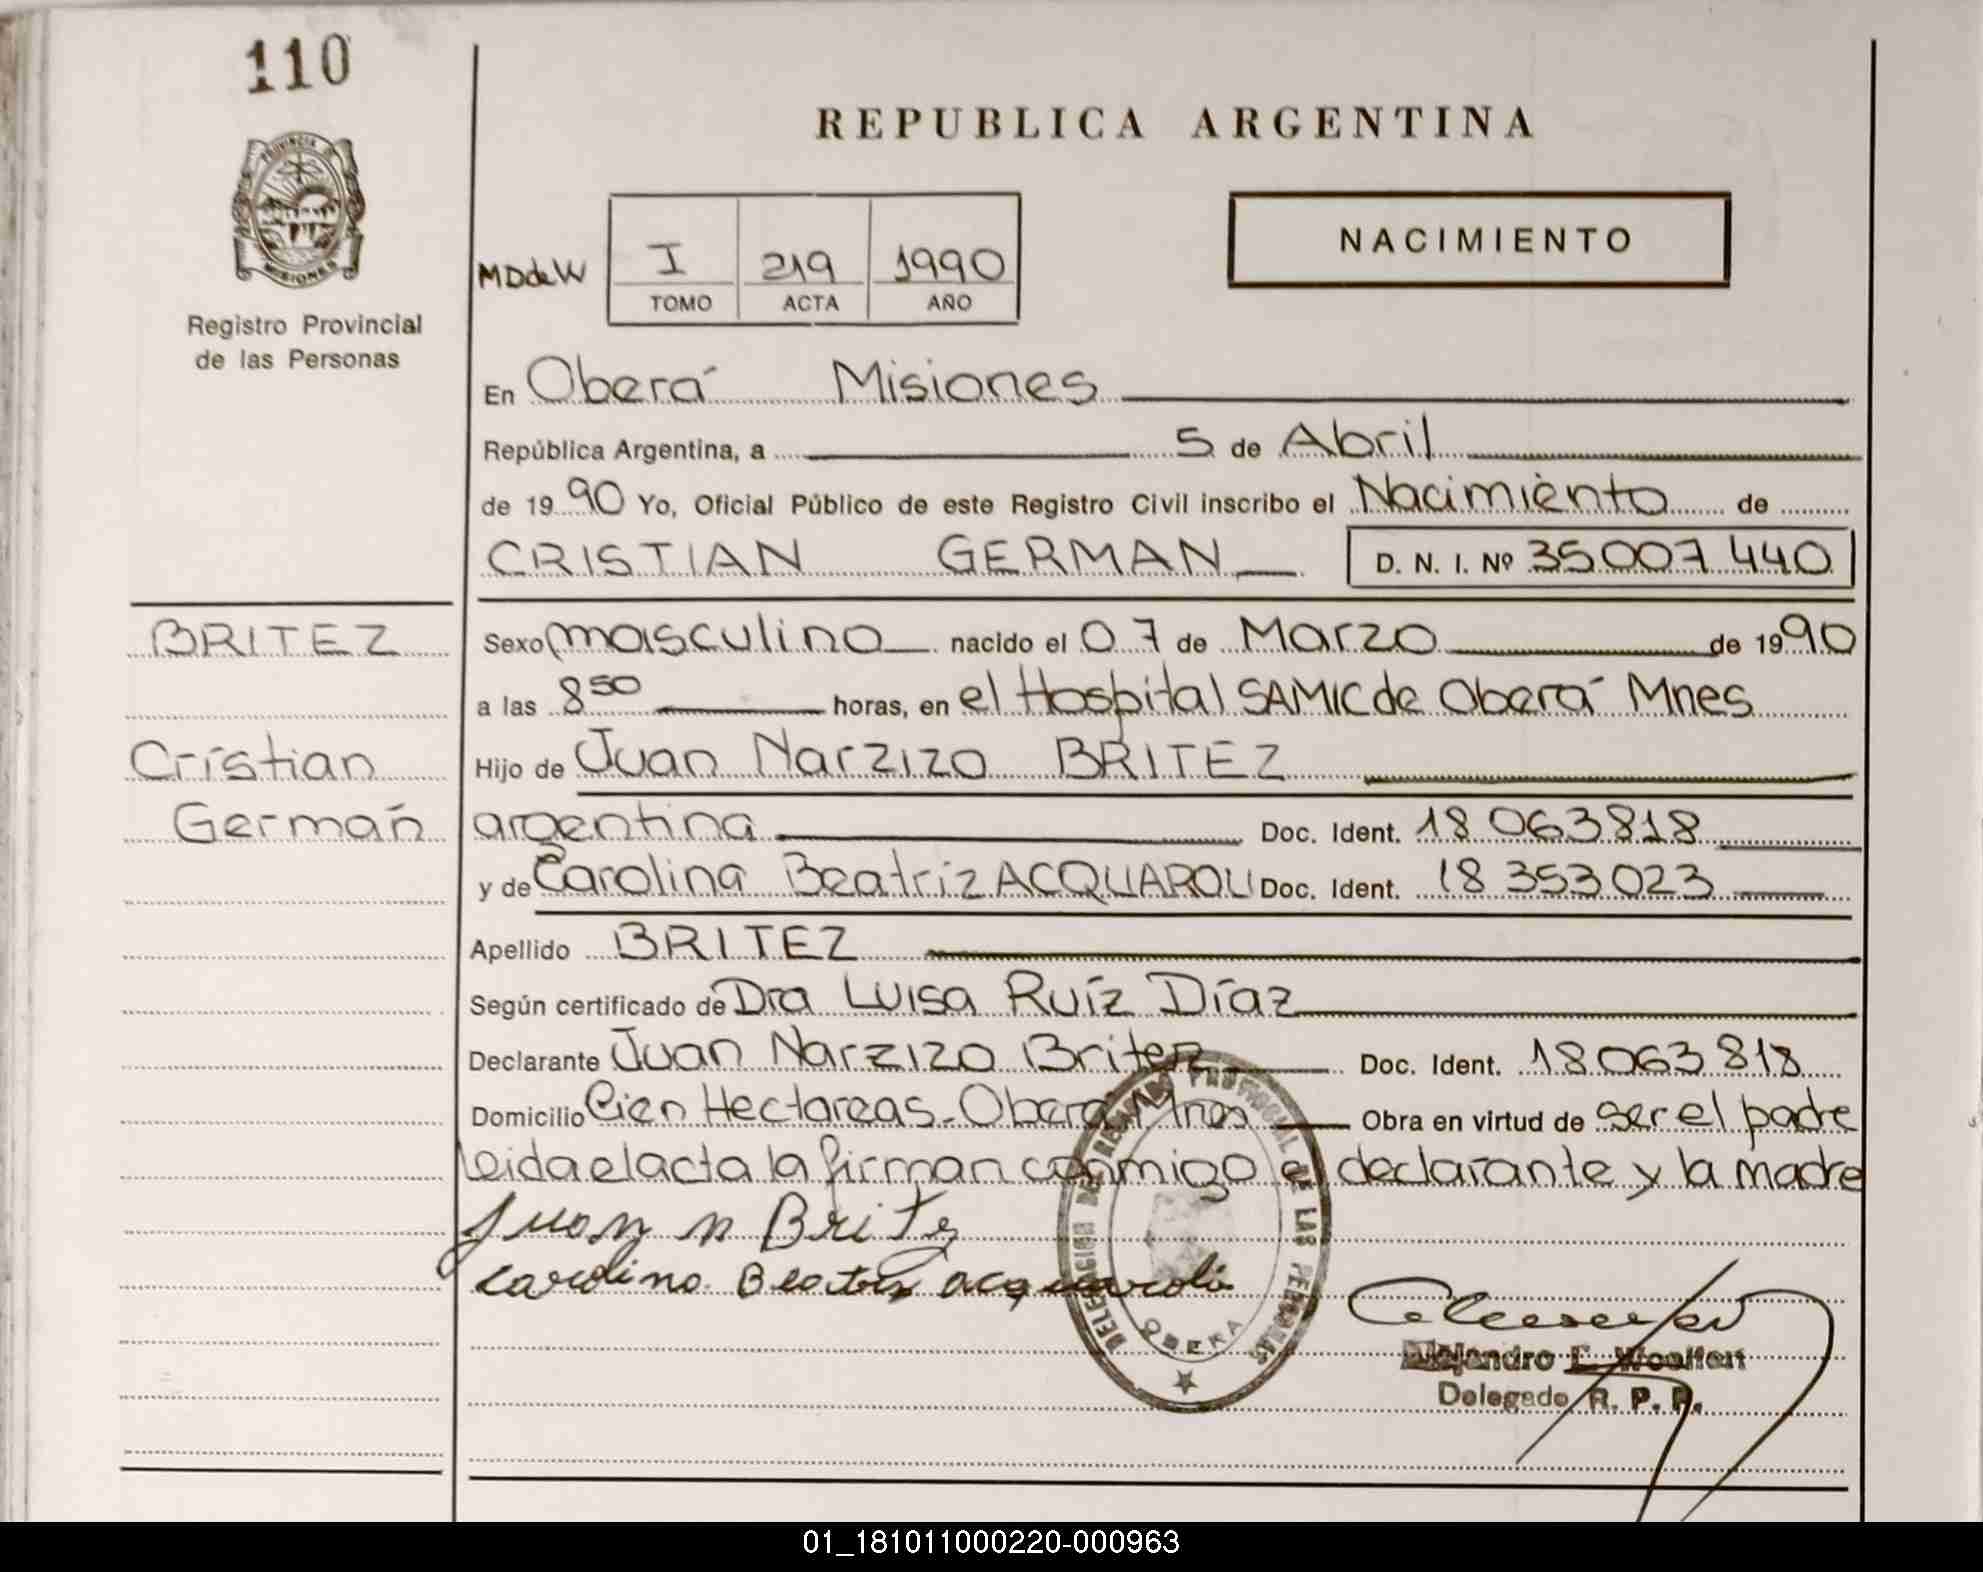 110
REPUBLICA ARGENTINA
PROVINCIA DE
MISIONES
Registro Provincial
de las Personas
MDdeW
I 219 1990
TOMO ACTA AÑO
NACIMIENTO
En Oberá Misiones
República Argentina, a 5 de Abril
de 1990 Yo, Oficial Público de este Registro Civil inscribo el Nacimiento de
CRISTIAN GERMAN D. N. I. Nº 35007440
BRITEZ
Cristian
Germán
Sexo masculino nacido el 07 de Marzo de 1990
a las 8 50 horas, en el Hospital SAMIC de Oberá Mnes
Hijo de Juan Narzizo BRITEZ
argentina Doc. Ident. 18 063818
y de Carolina Beatriz ACQUAROLI Doc. Ident. 18 353 023
Apellido BRITEZ
Según certificado de Dra Luisa Ruíz Díaz
Declarante Juan Narzizo Britez Doc. Ident. 18 063 818
Domicilio Cien Hectareas - Oberá Mnes Obra en virtud de ser el padre
leida el acta la firman conmigo el declarante y la madre
Juan N Britez
Carolina Beatriz acquaroli
DELEGACION DEL REGISTRO PROVINCIAL DE LAS PERSONAS
OBERA
Alejandro E. Woolfert
Delegado R. P. P.
01_181011000220-000963